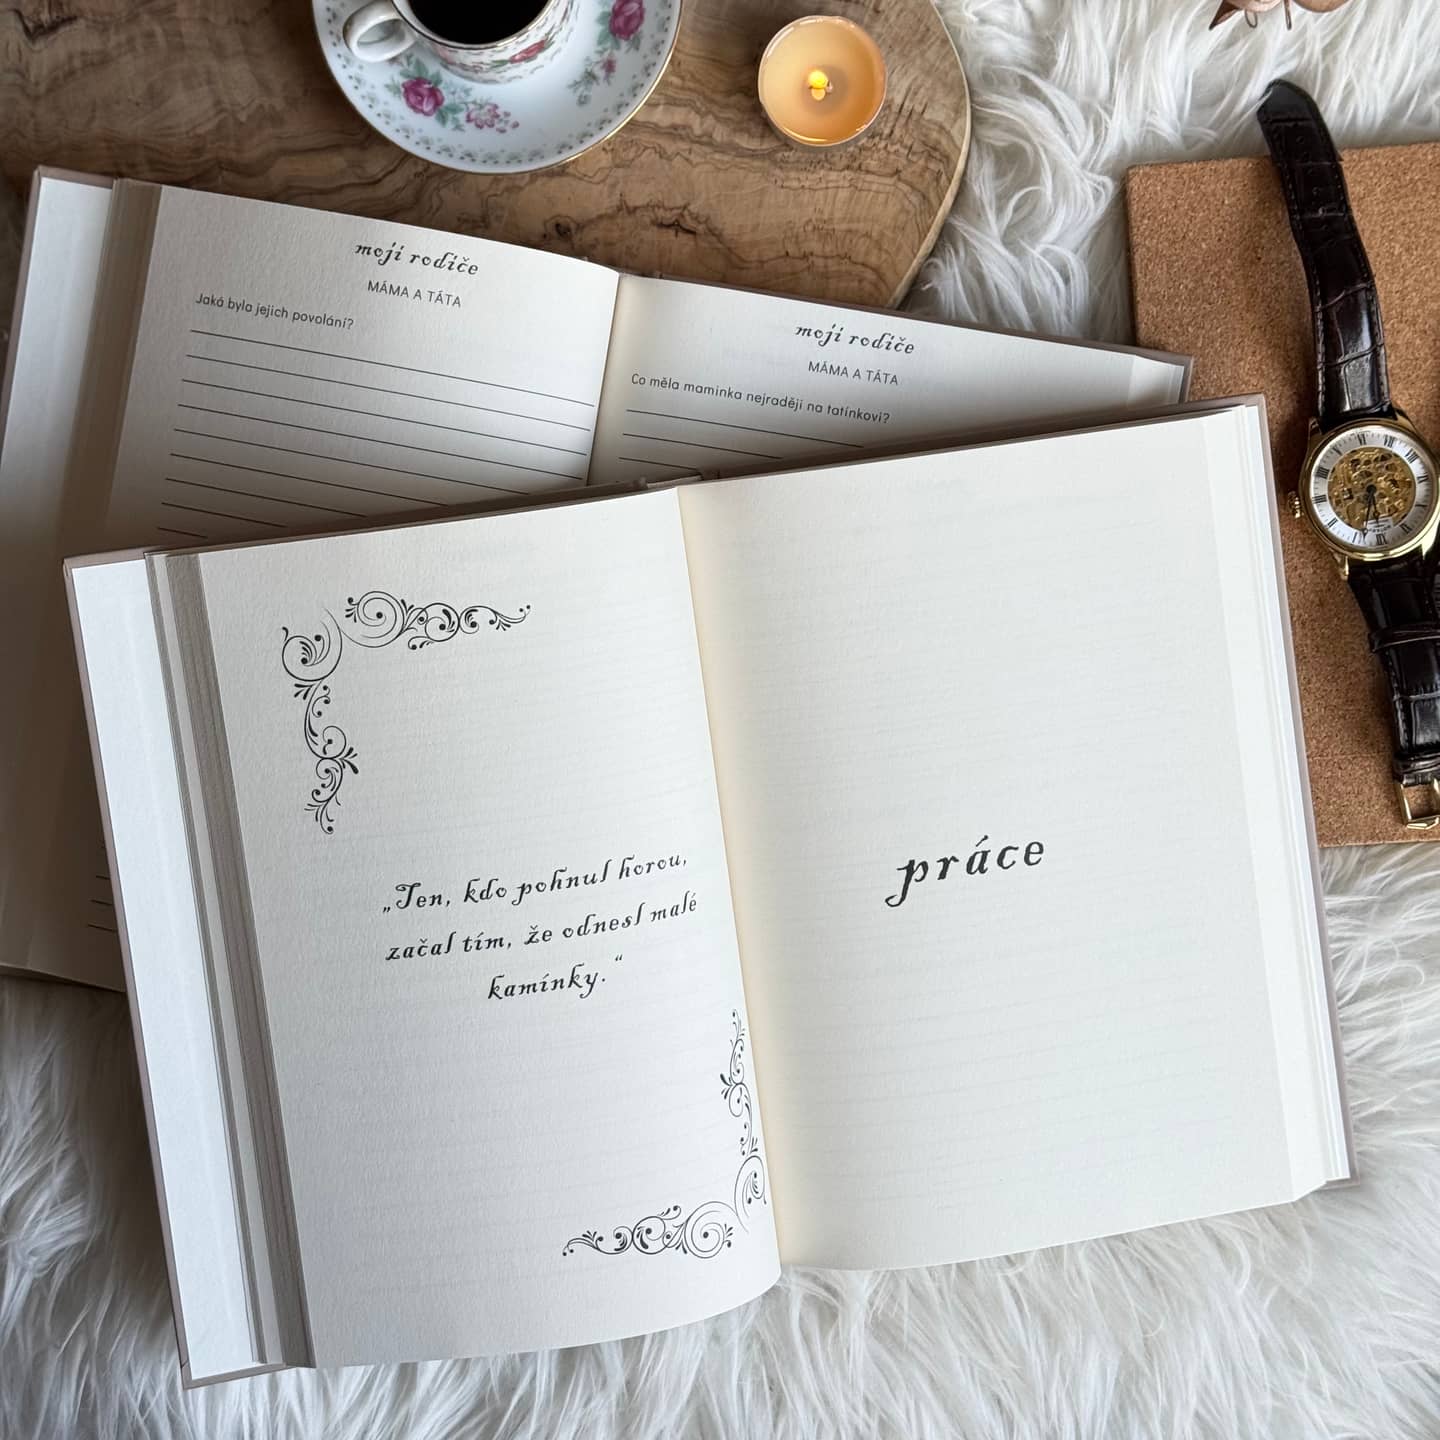 mojí rodíče
MÁMA A TÁTA
Jaká byla jejich povolání?
mojí rodíče
MÁMA A TÁTA
Co měla maminka nejraději na tatínkovi?
„Ten, kdo pohnul horou,
začal tím, že odnesl malé
kamínky.“
práce